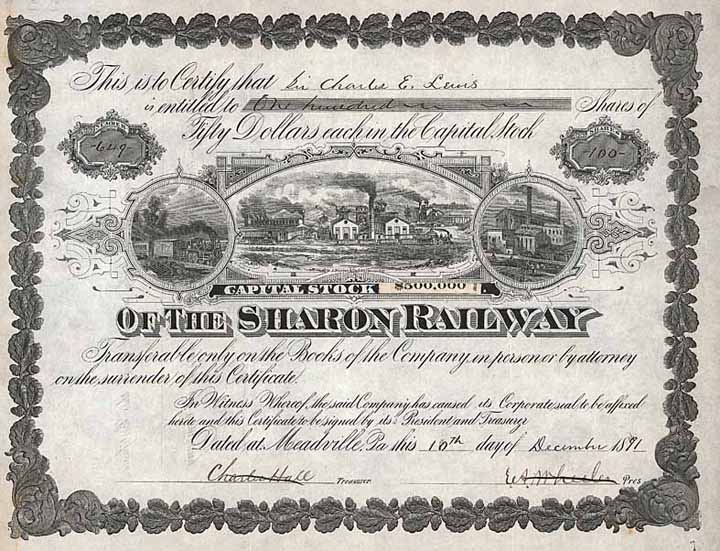 This is to Certify that Sir Charles E. Lewis
is entitled to One hundred Shares of
Fifty Dollars each in the Capital Stock
NUMBER
-649-
SHARES
-100-
CAPITAL STOCK $500,000.
OF THE SHARON RAILWAY
Transferable only on the Books of the Company, in person or by attorney
on the surrender of this Certificate.
In Witness Whereof, the said Company has caused its Corporate seal to be affixed
hereto and this Certificate to be signed by its President and Treasurer
Dated at Meadville, Pa this 10th day of December 1891
Charles Hall Treasurer E.A. Wheeler Pres